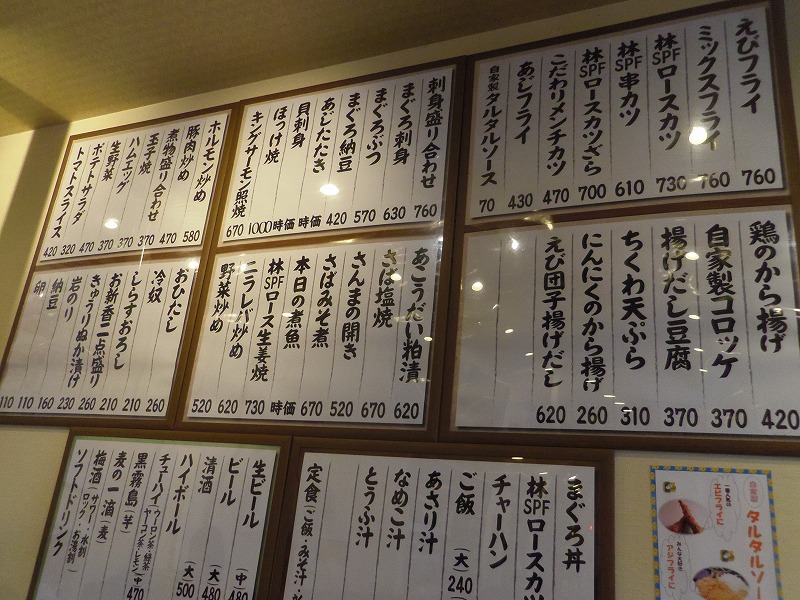 えびフライ 760
ミックスフライ 760
林SPFロースカツ 730
林SPF串カツ 610
林SPFロースカツざら 700
こだわりメンチカツ 470
あじフライ 430
自家製タルタルソース 70
鶏のから揚げ 420
自家製コロッケ 370
揚げだし豆腐 370
ちくわ天ぷら 310
にんにくのから揚げ 260
えび団子揚げだし 620
刺身盛り合わせ 760
まぐろ刺身 630
まぐろぶつ 570
まぐろ納豆 420
あじたたき 時価
貝刺身 時価
ほっけ焼 1000
キングサーモン照焼 670
あこうだい粕漬 620
さば塩焼 670
さんまの開き 520
さばみそ煮 670
本日の煮魚 時価
林SPFロース生姜焼 730
ニラレバ炒め 620
野菜炒め 520
ホルモン炒め 580
豚肉炒め 470
煮物盛り合わせ 370
玉子焼 370
ハムエッグ 370
生野菜 470
ポテトサラダ 320
トマトスライス 420
おひたし 260
冷奴 210
しらすおろし 210
お新香二点盛り 260
きゅうりぬか漬け 230
岩のり 160
納豆 110
卵 110
まぐろ丼
林SPFロースカツ
チャーハン
ご飯 (大) 240
あさり汁
なめこ汁
とうふ汁
定食(ご飯・みそ汁
生ビール (中) 480
ビール (大)
清酒 (大) 480
ハイボール (大) 500
チューハイ(ウーロン茶・緑茶 ヤーコン茶・レモン) (中) 470
黒霧島(芋)
麦の一滴(麦)
梅酒(サワー・水割 ロック・お湯割)
ソフトドリンク
自家製
タルタルソー
一番人気の
エビフライに
みんな大好き
アジフライに